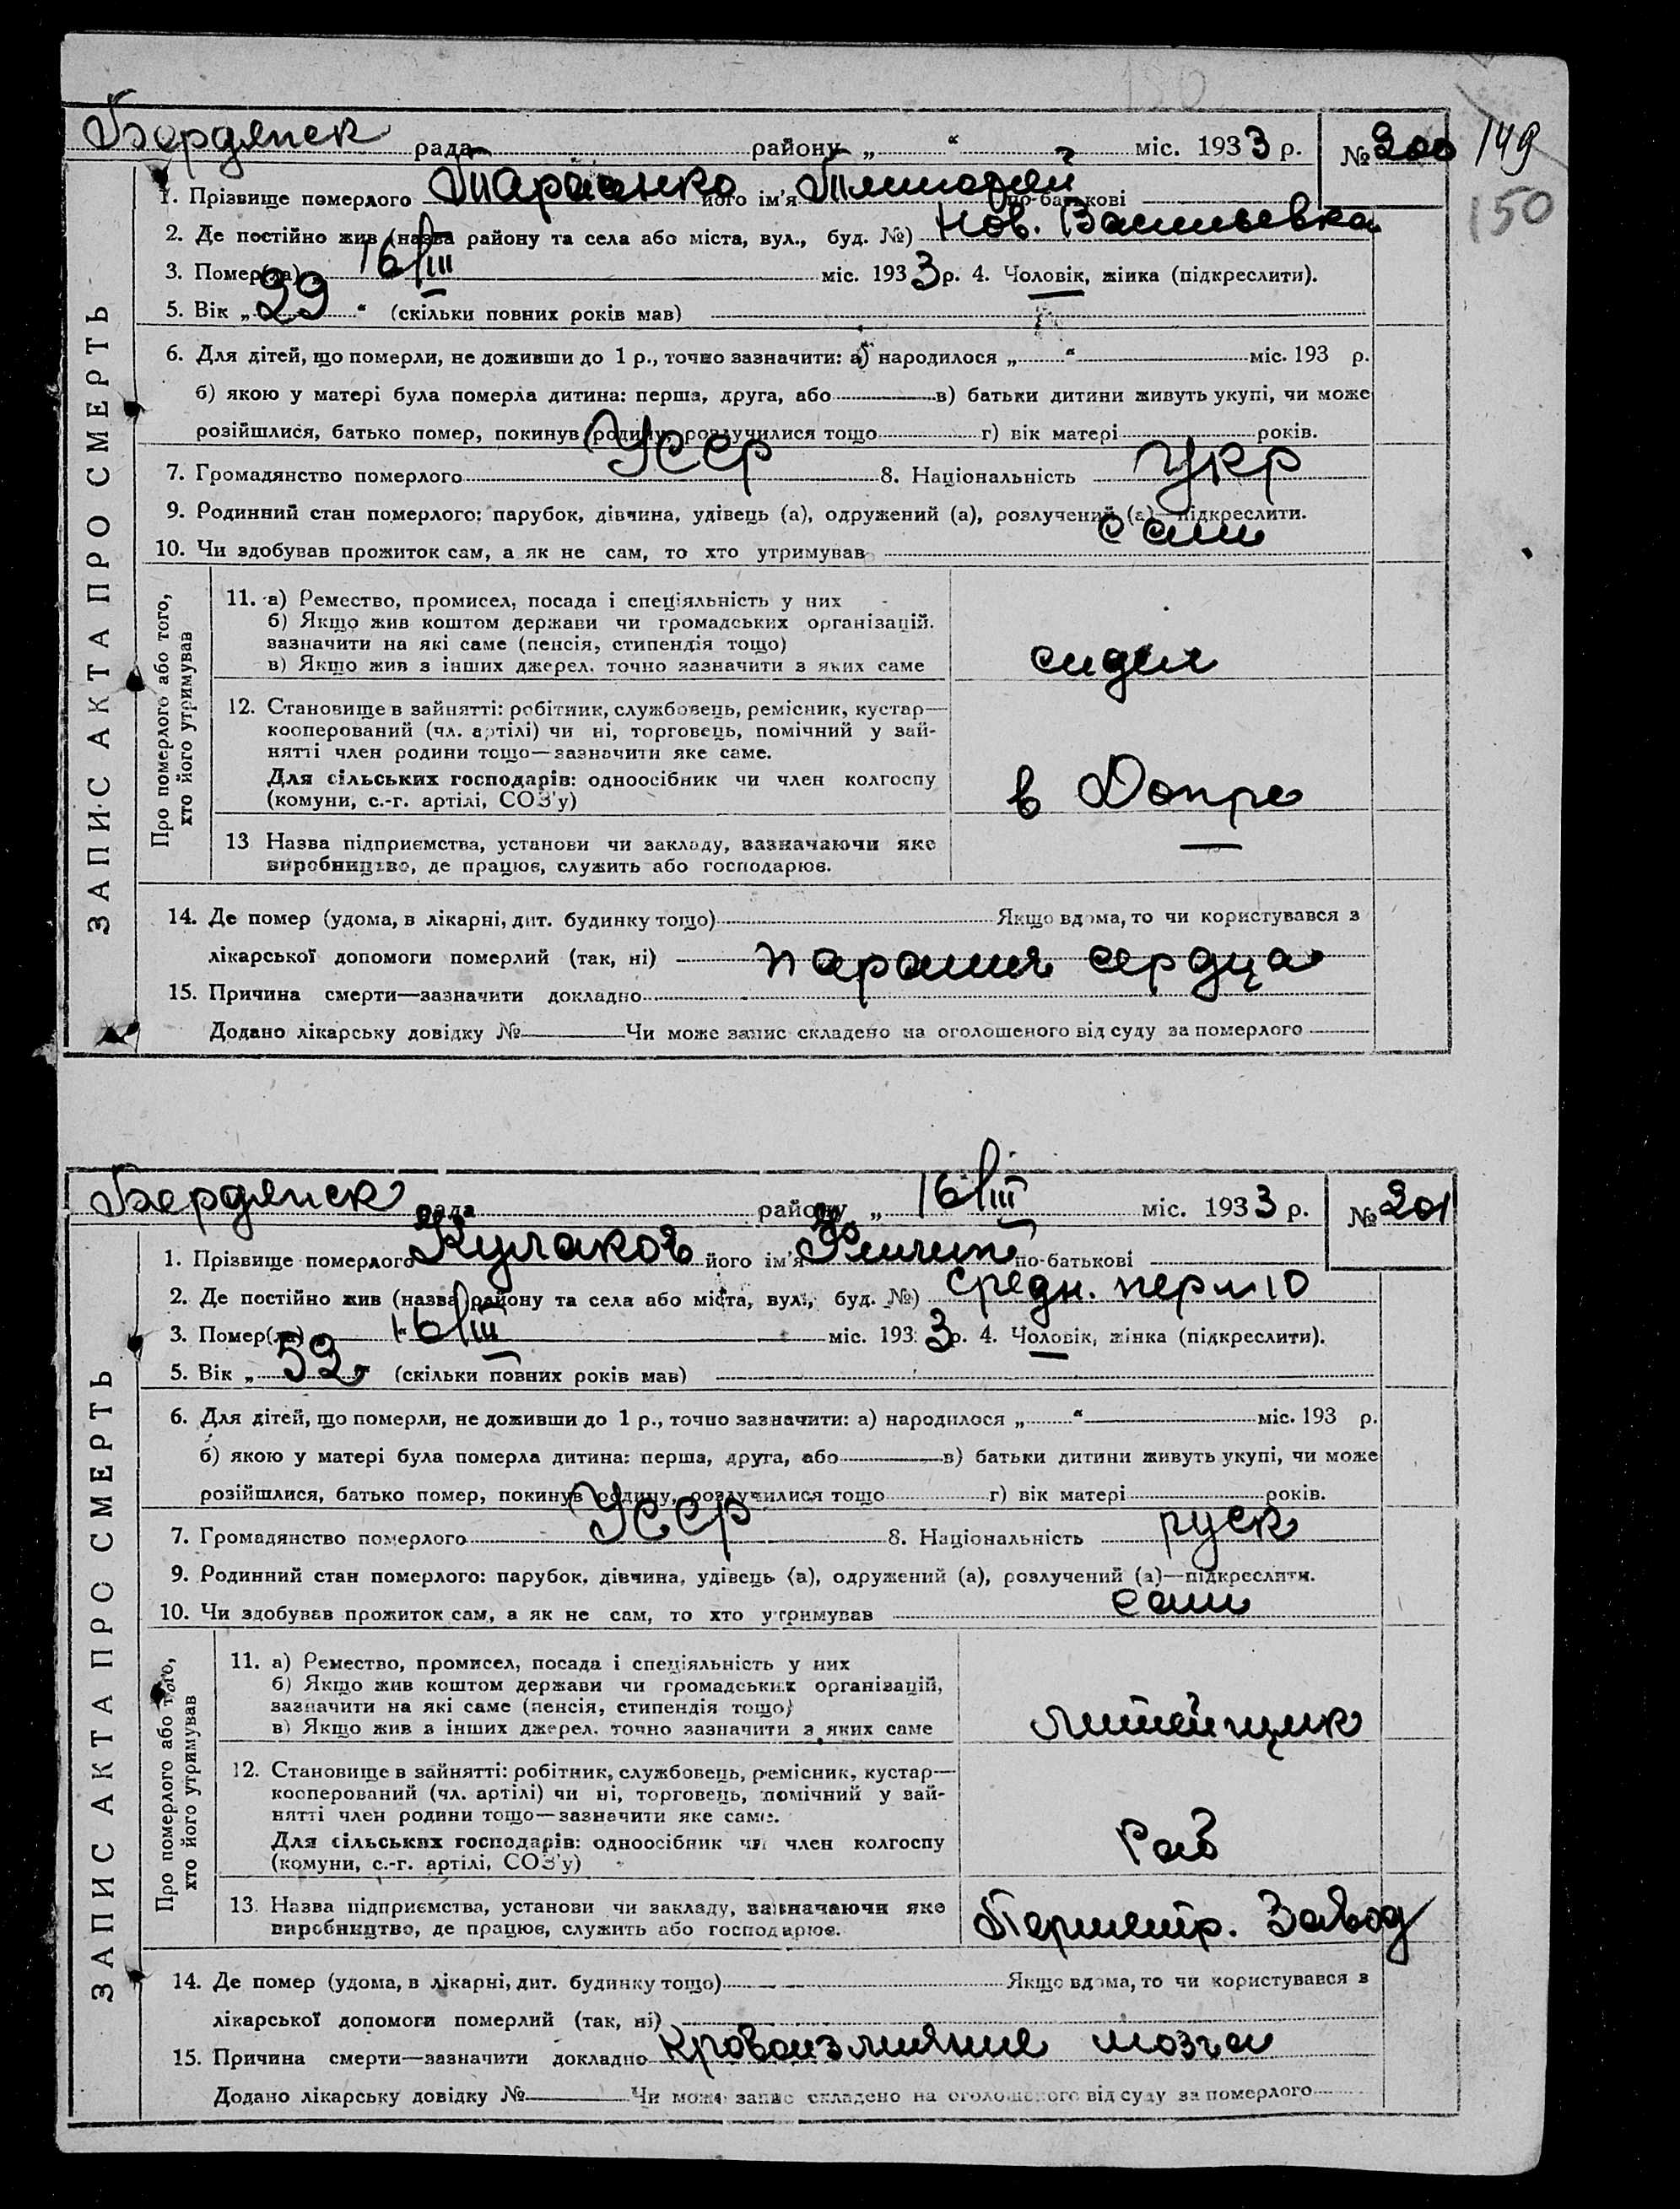 149
150
Бердянск рада району „ “ міс. 1933 р. № 200
1. Прізвище померлого Тараненко його ім'я Тимофей по-батькові
2. Де постійно жив (назва району та села або міста, вул., буд. №) Нов. Васильевка
3. Помер(ла) 16/III міс. 1933 р. 4. Чоловік, жінка (підкреслити).
5. Вік „ 29 “ (скільки повних років мав)
6. Для дітей, що померли, не доживши до 1 р., точно зазначити: а) народилося „ “ міс. 193 р.
б) якою у матері була померла дитина: перша, друга, або в) батьки дитини живуть укупі, чи може
розійшлися, батько помер, покинув родину, розлучилися тощо г) вік матері років.
7. Громадянство померлого УССР 8. Національність Укр
9. Родинний стан померлого: парубок, дівчина, удівець (а), одружений (а), розлучений (а)—підкреслити.
10. Чи здобував прожиток сам, а як не сам, то хто утримував сам
ЗАПИС АКТА ПРО СМЕРТЬ
Про померлого або того,
хто його утримував
11. а) Ремество, промисел, посада і спеціяльність у них
б) Якщо жив коштом держави чи громадських організацій.
зазначити на які саме (пенсія, стипендія тощо)
в) Якщо жив з інших джерел. точно зазначити з яких саме
сидел
12. Становище в зайнятті: робітник, службовець, ремісник, кустар—
кооперований (чл. артілі) чи ні, торговець, помічний у зай-
нятті член родини тощо—зазначити яке саме.
Для сільських господарів: одноосібник чи член колгоспу
(комуни, с.-г. артілі, СОЗ'у)
в Допре
13 Назва підприємства, установи чи закладу, зазначаючи яке
виробництво, де працює, служить або господарює.
14. Де помер (удома, в лікарні, дит. будинку тощо) Якщо вдома, то чи користувався з
лікарської допомоги померлий (так, ні) паралич сердца
15. Причина смерти—зазначити докладно
Додано лікарську довідку № Чи може запис складено на оголошеного від суду за померлого
Бердянск рада району „ 16/III міс. 1933 р. № 201
1. Прізвище померлого Кулаков його ім'я Филип по-батькові
2. Де постійно жив (назва району та села або міста, вул., буд. №) Средн. 10
3. Помер(ла) 16/III міс. 1933 р. 4. Чоловік, жінка (підкреслити).
5. Вік „ 52 (скільки повних років мав)
6. Для дітей, що померли, не доживши до 1 р., точно зазначити: а) народилося „ “ міс. 193 р.
б) якою у матері була померла дитина: перша, друга, або в) батьки дитини живуть укупі, чи може
розійшлися, батько помер, покинув родину, розлучилися тощо г) вік матері років.
7. Громадянство померлого УССР 8. Національність руск
9. Родинний стан померлого: парубок, дівчина, удівець (а), одружений (а), розлучений (а)—підкреслити.
10. Чи здобував прожиток сам, а як не сам, то хто утримував сам
ЗАПИС АКТА ПРО СМЕРТЬ
Про померлого або того,
хто його утримував
11. а) Ремество, промисел, посада і спеціяльність у них
б) Якщо жив коштом держави чи громадських організацій,
зазначити на які саме (пенсія, стипендія тощо)
в) Якщо жив з інших джерел. точно зазначити з яких саме
литейщик
12. Становище в зайнятті: робітник, службовець, ремісник, кустар—
кооперований (чл. артілі) чи ні, торговець, помічний у зай-
нятті член родини тощо—зазначити яке саме.
Для сільських господарів: одноосібник чи член колгоспу
(комуни, с.-г. артілі, СОЗ'у)
Раб
13. Назва підприємства, установи чи закладу, зазначаючи яке
виробництво, де працює, служить або господарює.
Первметр. Завод
14. Де помер (удома, в лікарні, дит. будинку тощо) Якщо вдома, то чи користувався з
лікарської допомоги померлий (так, ні)
15. Причина смерти—зазначити докладно Кровоизлияние мозга
Додано лікарську довідку № Чи може запис складено на оголошеного від суду за померлого